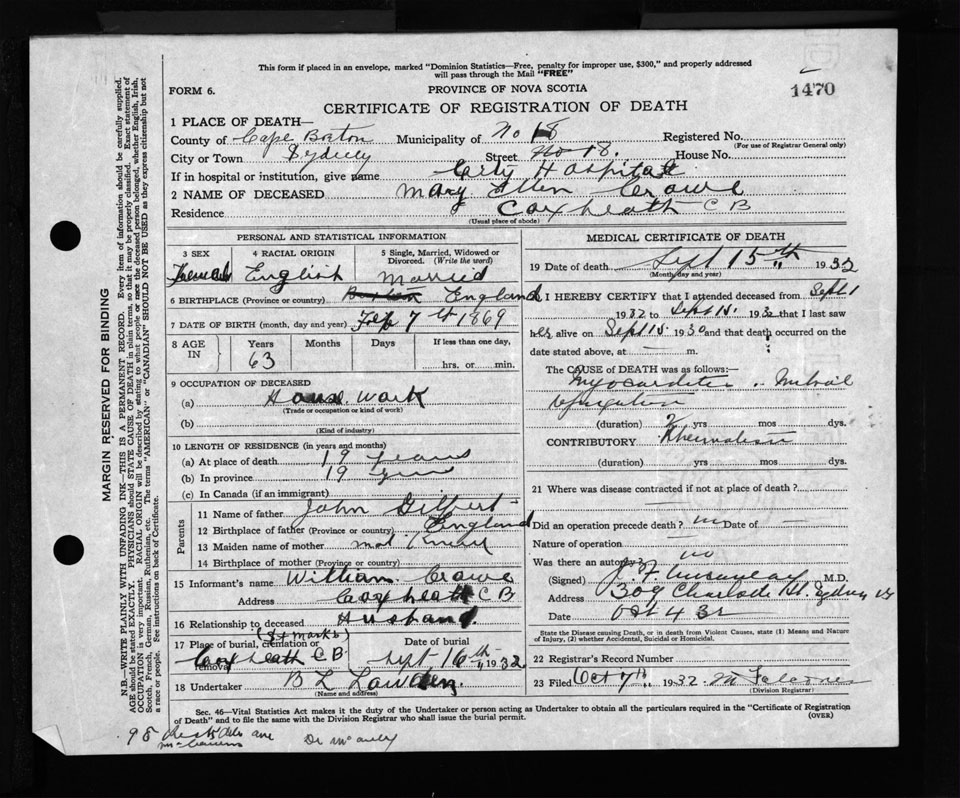 This form if placed in an envelope, marked "Dominion Statistics—Free, penalty for improper use, $300," and properly addressed
will pass through the Mail "FREE"
FORM 6.
PROVINCE OF NOVA SCOTIA
1470
CERTIFICATE OF REGISTRATION OF DEATH
1 PLACE OF DEATH—
County of Cape Breton Municipality of No 18 Registered No.
(For use of Registrar General only)
City or Town Sydney Street No 18. House No.
If in hospital or institution, give name City Hospital
2 NAME OF DECEASED Mary Ellen Crowe
Residence Coxheath C B
(Usual place of abode)
PERSONAL AND STATISTICAL INFORMATION
3 SEX 4 RACIAL ORIGIN 5 Single, Married, Widowed or Divorced. (Write the word)
Female English Married
6 BIRTHPLACE (Province or country) England
7 DATE OF BIRTH (month, day and year) Feb 7th 1869
8 AGE IN Years Months Days If less than one day,
63 hrs. or min.
9 OCCUPATION OF DECEASED
(a) House work
(Trade or occupation or kind of work)
(b)
(Kind of industry)
10 LENGTH OF RESIDENCE (in years and months)
(a) At place of death 19 years
(b) In province 19 years
(c) In Canada (if an immigrant)
Parents
11 Name of father John Gilbert
12 Birthplace of father (Province or country) England
13 Maiden name of mother not
14 Birthplace of mother (Province or country)
15 Informant's name William Crowe
Address Coxheath C B
16 Relationship to deceased Husband
17 Place of burial, cremation or removal (St Marks) Date of burial
Coxheath C B Sept 16th 1932
18 Undertaker B L
(Name and address)
MEDICAL CERTIFICATE OF DEATH
19 Date of death Sept 15th 1932
(Month, day and year)
I HEREBY CERTIFY that I attended deceased from Sept 1
1932 to Sept 15 1932 that I last saw
her alive on Sept 15 1930 and that death occurred on the
date stated above, at — m.
The CAUSE of DEATH was as follows:—
Myocarditis Mitral
(duration) 2 yrs mos dys.
CONTRIBUTORY Rheumatism
(duration) yrs mos dys.
21 Where was disease contracted if not at place of death?
Did an operation precede death? no Date of —
Nature of operation —
Was there an autopsy? no
(Signed) M.D.
Address 309 Charlotte St. Sydney
Date Oct 4 32
State the Disease causing Death, or in death from Violent Causes, state (1) Means and Nature of Injury, (2) whether Accidental, Suicidal or Homicidal.
22 Registrar's Record Number
23 Filed Oct 7th 1932
(Division Registrar)
Sec. 46—Vital Statistics Act makes it the duty of the Undertaker or person acting as Undertaker to obtain all the particulars required in the "Certificate of Registration
of Death" and to file the same with the Division Registrar who shall issue the burial permit.
(OVER)
98 ave
Dr
MARGIN RESERVED FOR BINDING
N.B.—WRITE PLAINLY WITH UNFADING INK—THIS IS A PERMANENT RECORD. Every item of information should be carefully supplied.
AGE should be stated EXACTLY. PHYSICIANS should STATE CAUSE OF DEATH in plain terms, so that it may be properly classified. Exact statement of
OCCUPATION is very important. RACIAL ORIGIN will be described by stating to what people or race the deceased person belonged, whether English, Irish,
Scotch, French, German, Russian, Ruthenian, etc. The terms "AMERICAN" or "CANADIAN" SHOULD NOT BE USED as they express citizenship but not
a race or people. See instructions on back of Certificate.